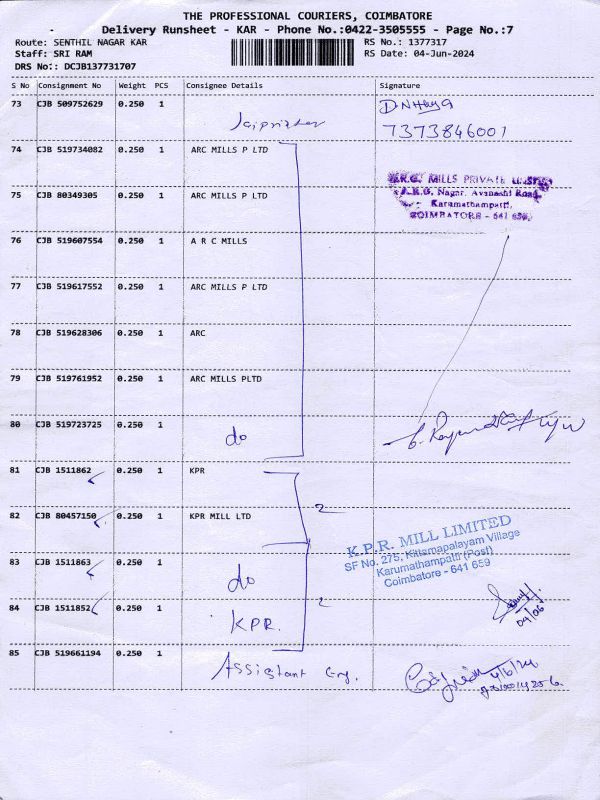 THE PROFESSIONAL COURIERS, COIMBATORE
Delivery Runsheet - KAR - Phone No.:0422-3505555 - Page No.:7
Route: SENTHIL NAGAR KAR RS No.: 1377317
Staff: SRI RAM RS Date: 04-Jun-2024
DRS No:: DCJB137731707
S No Consignment No Weight PCS Consignee Details Signature
73 CJB 509752629 0.250 1
7373846001
74 CJB 519734082 0.250 1 ARC MILLS P LTD
MILLS PRIVATE
75 CJB 80349305 0.250 1 ARC MILLS P LTD
Nagar, Avanashi Road,
Karumathampatti,
COIMBATORE - 641
76 CJB 519607554 0.250 1 A R C MILLS
77 CJB 519617552 0.250 1 ARC MILLS P LTD
78 CJB 519628306 0.250 1 ARC
79 CJB 519761952 0.250 1 ARC MILLS PLTD
80 CJB 519723725 0.250 1 do
81 CJB 1511862 0.250 1 KPR
2
82 CJB 80457150 0.250 1 KPR MILL LTD
K.P.R. MILL LIMITED
SF No. 275, Kittampalayam Village
Karumathampatti (Post)
Coimbatore - 641 659
83 CJB 1511863 0.250 1 do
2
84 CJB 1511852 0.250 1 KPR.
04/06
85 CJB 519661194 0.250 1 Assistant Eng.
4/6/24